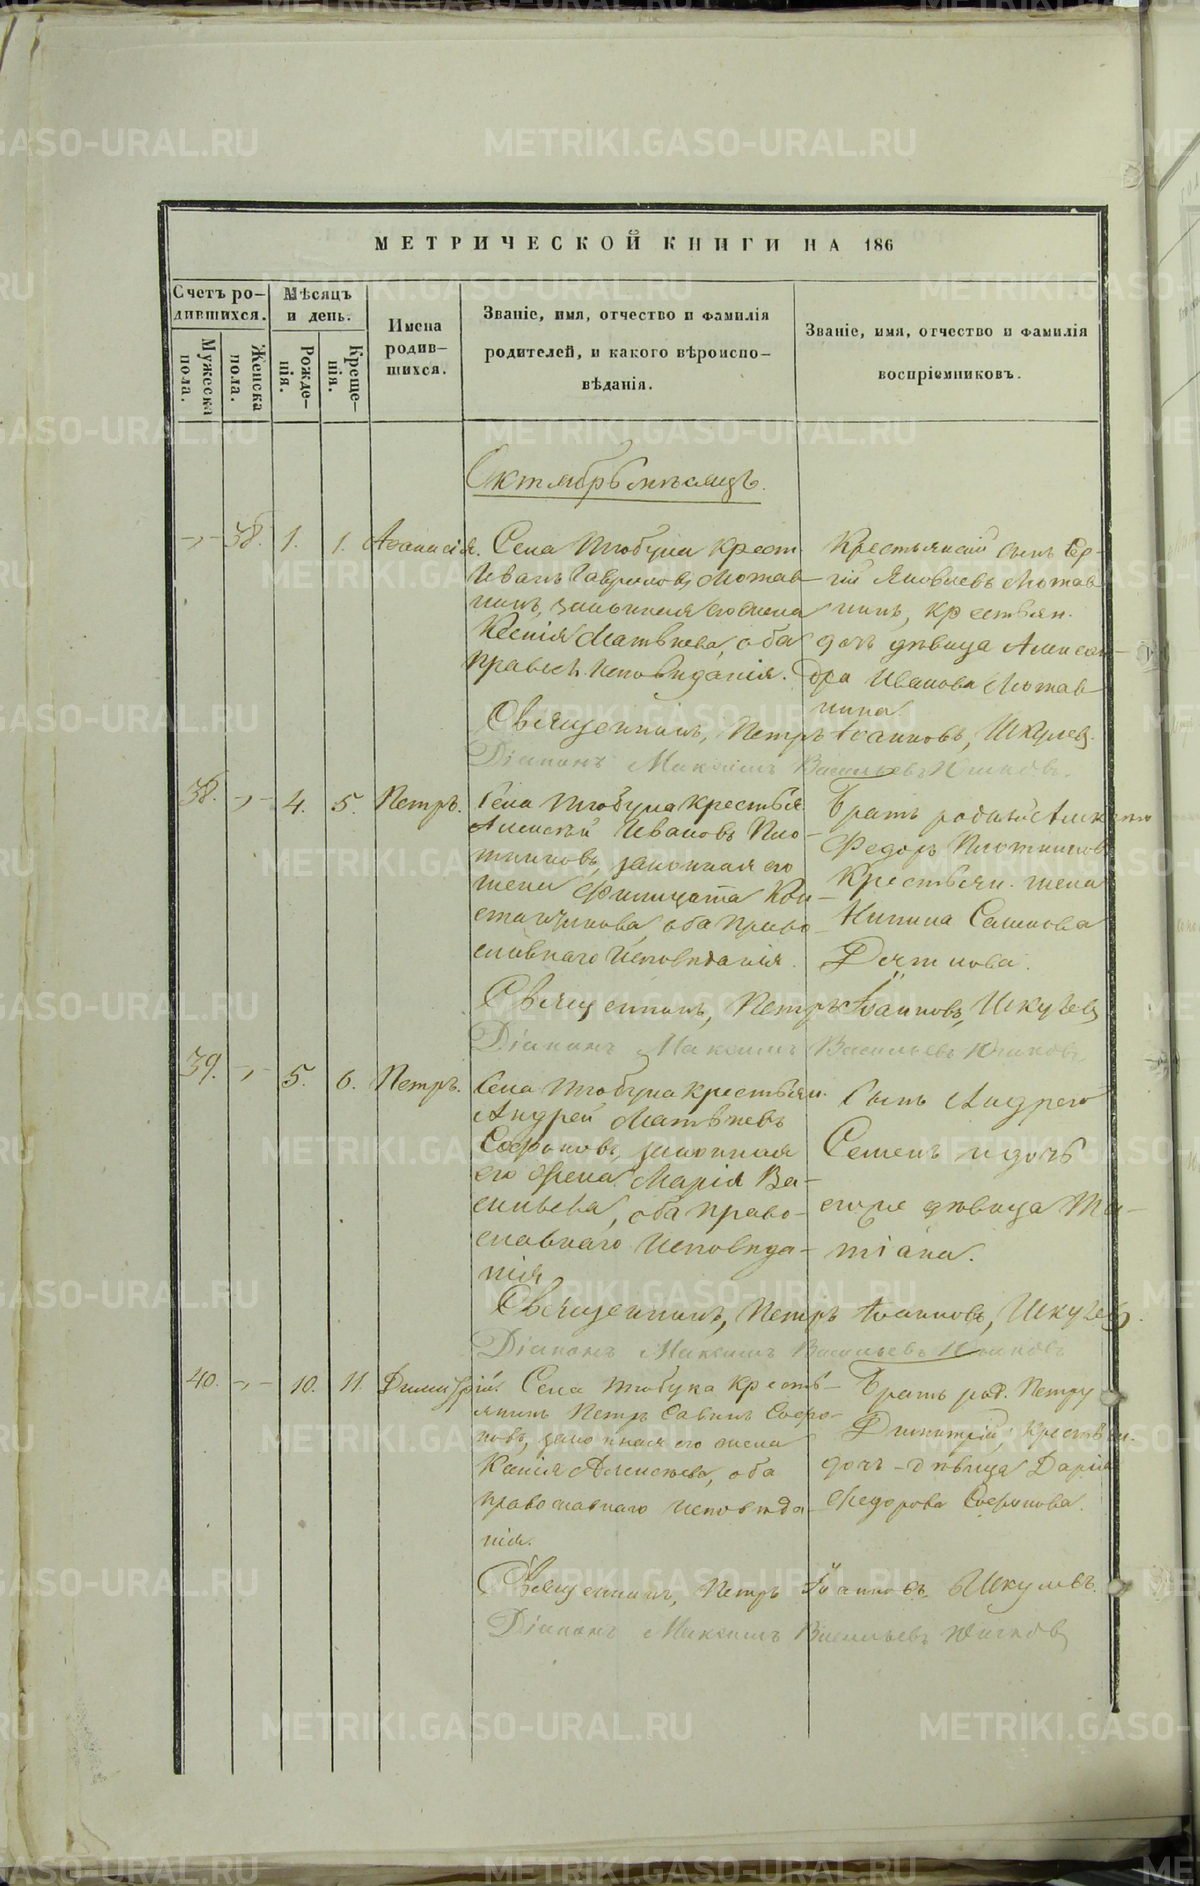 МЕТРИЧЕСКОЙ КНИГИ НА 186
Счетъ ро-
дившихся.
Мужеска
пола.
Женска
пола.
Мѣсяцъ
и день.
Рожде-
нія.
Креще-
нія.
Имена
родив-
шихся.
Званіе, имя, отчество и фамилія
родителей, и какого вѣроиспо-
вѣданія.
Званіе, имя, отчество и фамилія
воспріемниковъ.
Октябрь мѣсяцъ.
38. 1. 1. Афанасія.
Села Тюбука Крест.
Иванъ Гавриловъ
законная его жена
Ксенія Матвѣева, оба
правосл. исповѣданія.
Крестьянскій сынъ Сер-
гій Яковлевъ
крестьян.
дочь дѣвица Алексан-
дра Иванова
Священникъ, Петръ Іоанновъ,
Діаконъ Максимъ Васильевъ
38. 4. 5. Петръ.
Села Тюбука крестья.
Алексѣй Ивановъ Пло-
тниковъ, законная его
жена Филицата Кон-
стантинова, оба право-
славнаго исповѣданія.
Братъ родной Алексѣю
Федоръ Плотниковъ
Крестьян. жена
Семенова
Священникъ, Петръ Іоанновъ,
Діаконъ Максимъ Васильевъ
39. 5. 6. Петръ.
Села Тюбука крестьян.
Андрей Матвѣевъ
Софроновъ, законная
его жена Марія Ва-
сильева, оба право-
славнаго исповѣда-
нія
Сынъ Андрея
Семенъ и дочь
его же дѣвица Та-
тіана.
Священникъ, Петръ Іоанновъ,
Діаконъ Максимъ Васильевъ
40. 10. 11. Димитрій.
Села Тюбука кресть-
янинъ Петръ Савинъ Софро-
новъ, законная его жена
Ксенія Алексѣева, оба
православнаго исповѣда-
нія.
Братъ род. Петру
Димитрій, крестьян.
дочь-дѣвица Дарія
Федорова Софронова.
Священникъ, Петръ Іоанновъ
Діаконъ Максимъ Васильевъ
METRIKI.GASO-URAL.RU